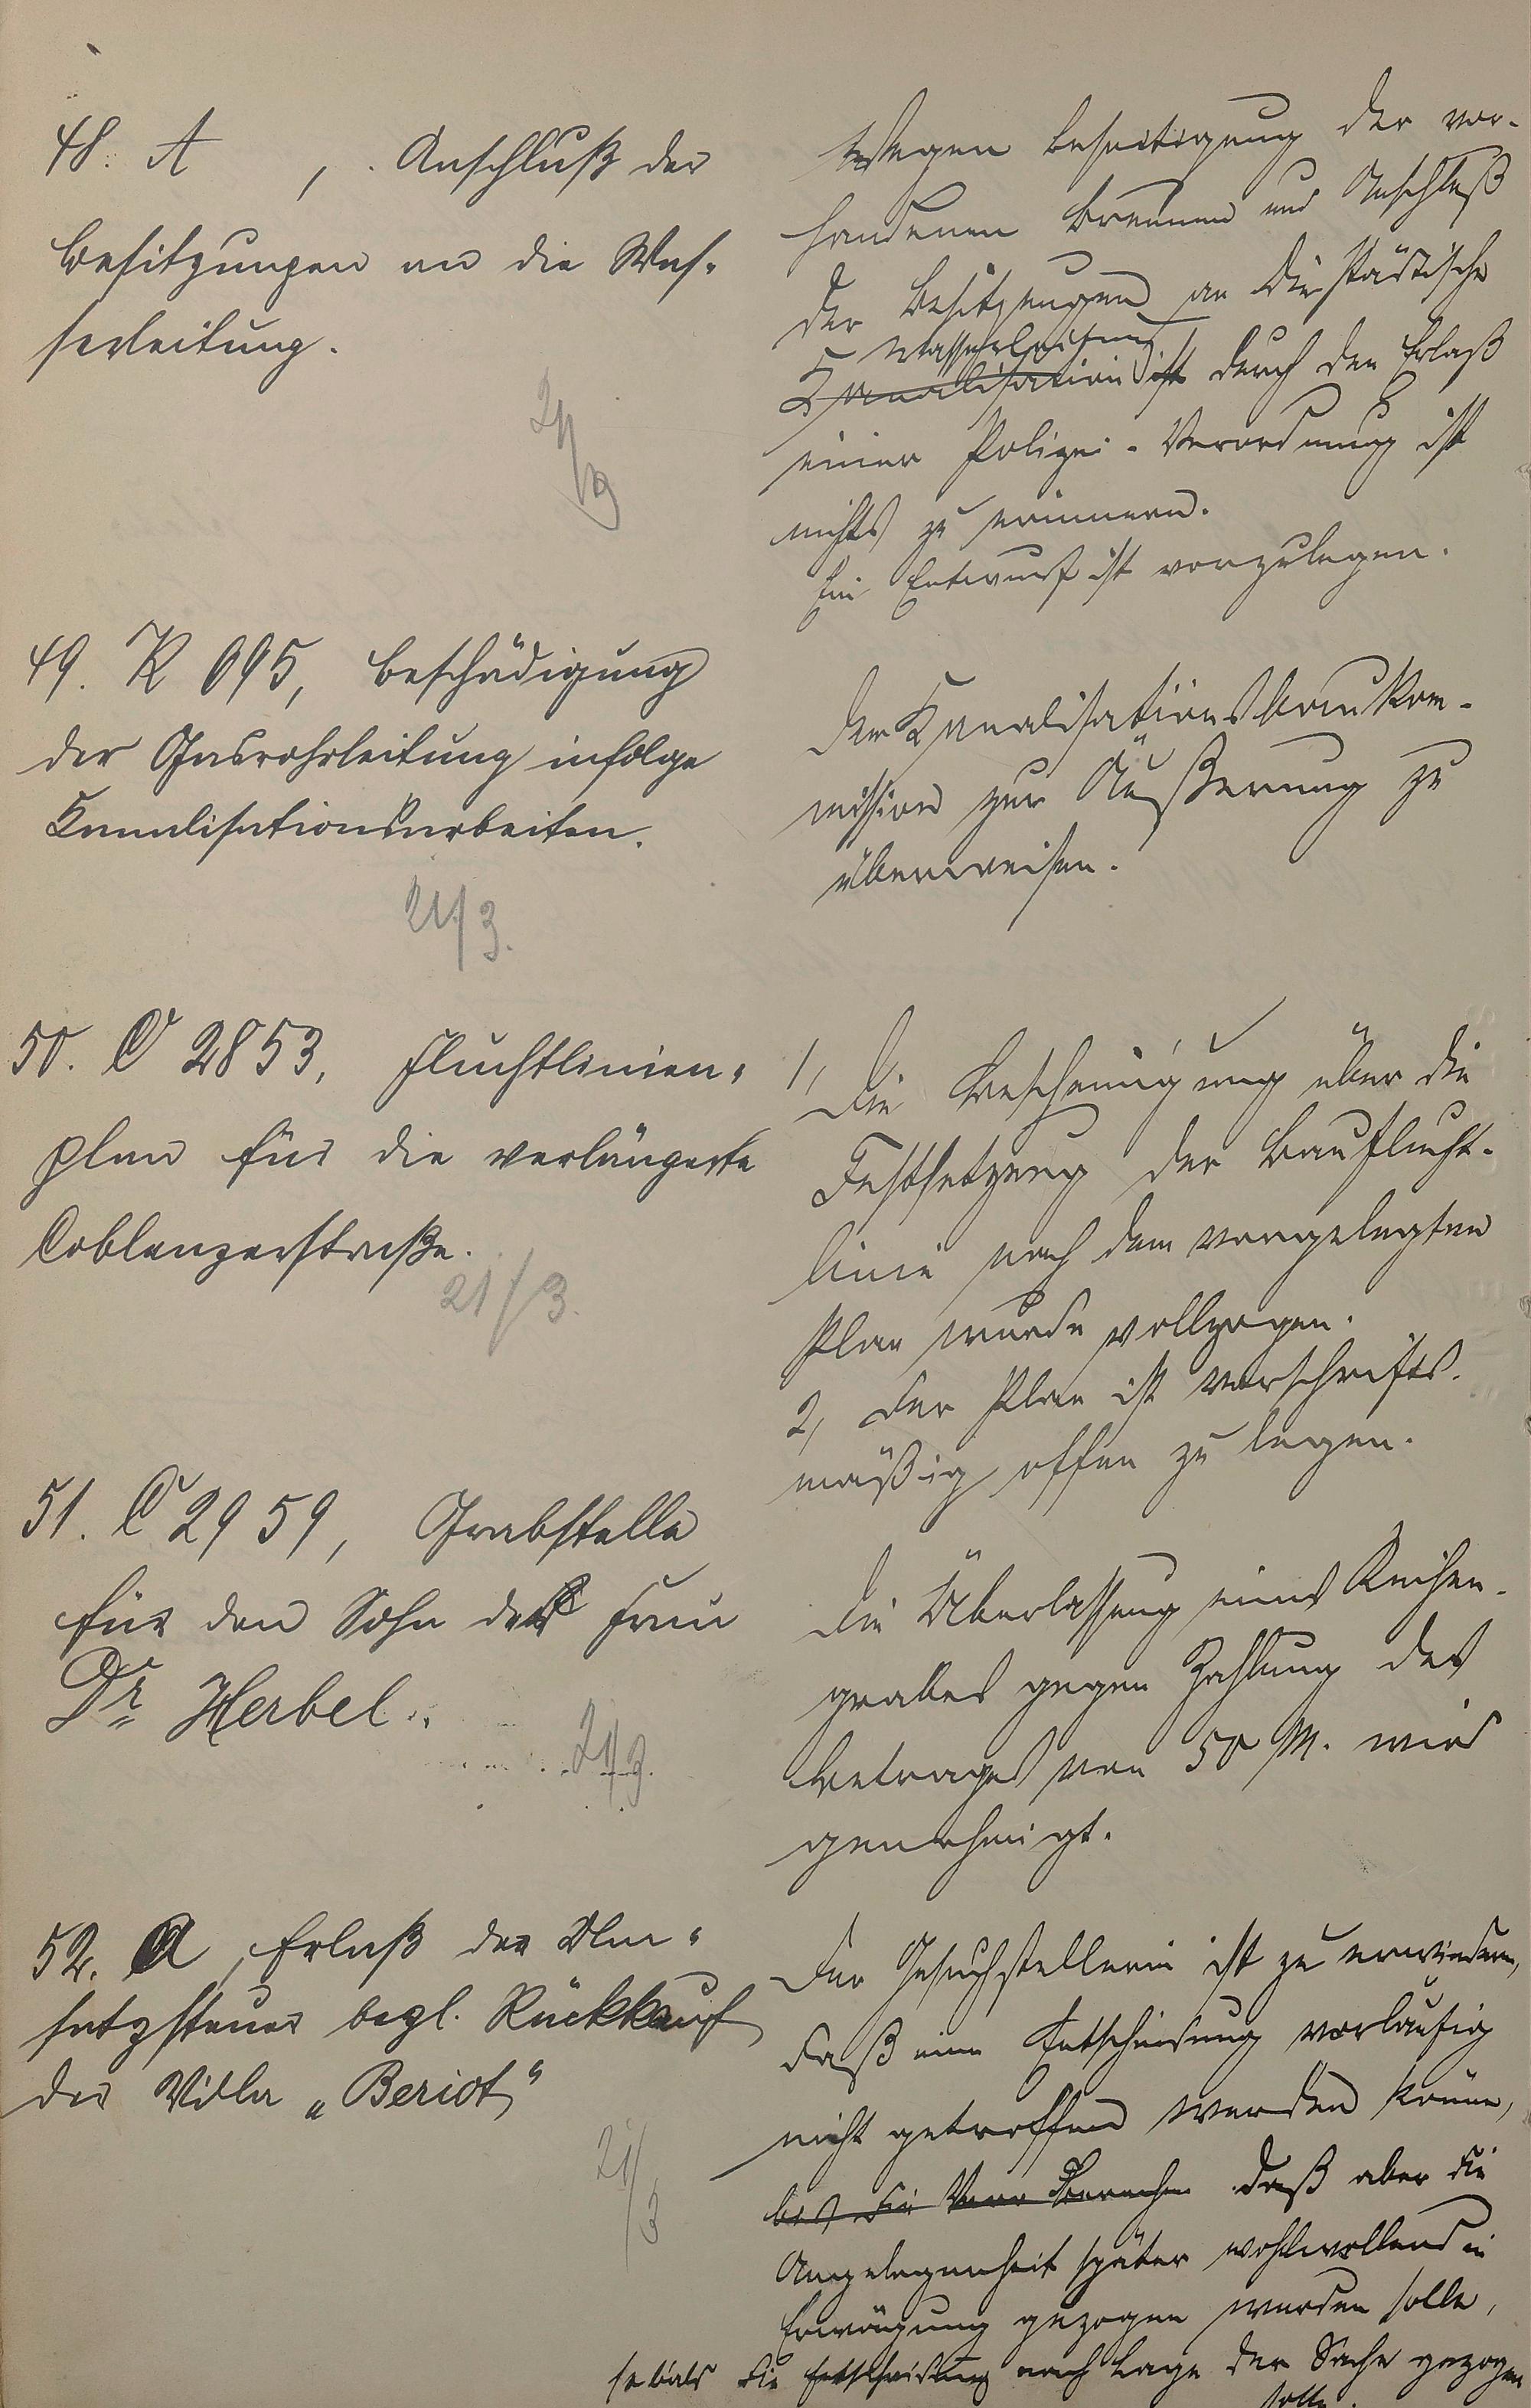 48. A , Anschluß der
Besitzungen an die Was-
serleitung.
21/3
Wegen Beseitigung der vor-
handenen Brunnen und Anschluß
der Besitzungen an die städtische
Wasserleitung
Kanalisation ist durch den Erlaß
einer Polizei-Verordnung ist
nichts zu erinnern.
Ein Entwurf ist vorzulegen.
49. K 695, Beschädigung
der Gasrohrleitung infolge
Kanalisationsarbeiten.
21/3.
Der Kanalisationsbaukom-
mission zur Äußerung zu
überweisen.
50. C 2853, Fluchtlinien-
plan für die verlängerte
Coblenzerstraße.
21/3.
1, Die Bescheinigung über die
Festsetzung der Bauflucht-
linie nach dem vorgelegten
Plan wurde vollzogen.
2, Der Plan ist vorschrifts-
mäßig offen zu legen.
51. C 2959, Grabstelle
für den Sohn der Frau
Dr Herbel.
21/3.
Die Überlassung eines Reihen-
grabes gegen Zahlung des
Betrages von 50 M. wird
genehmigt.
52. A, Erlaß der Um-
satzsteuer bezgl. Rückkauf
der Villa „Beriot"
21/3
Der Gesuchstellerin ist zu erwiedern,
daß eine Entscheidung vorläufig
nicht getroffen werden könne,
bis die daß aber die
Angelegenheit später wohlwollend in
Erwägung gezogen werden solle,
sobald die Entscheidung nach Lage der Sache gezogen
solle.